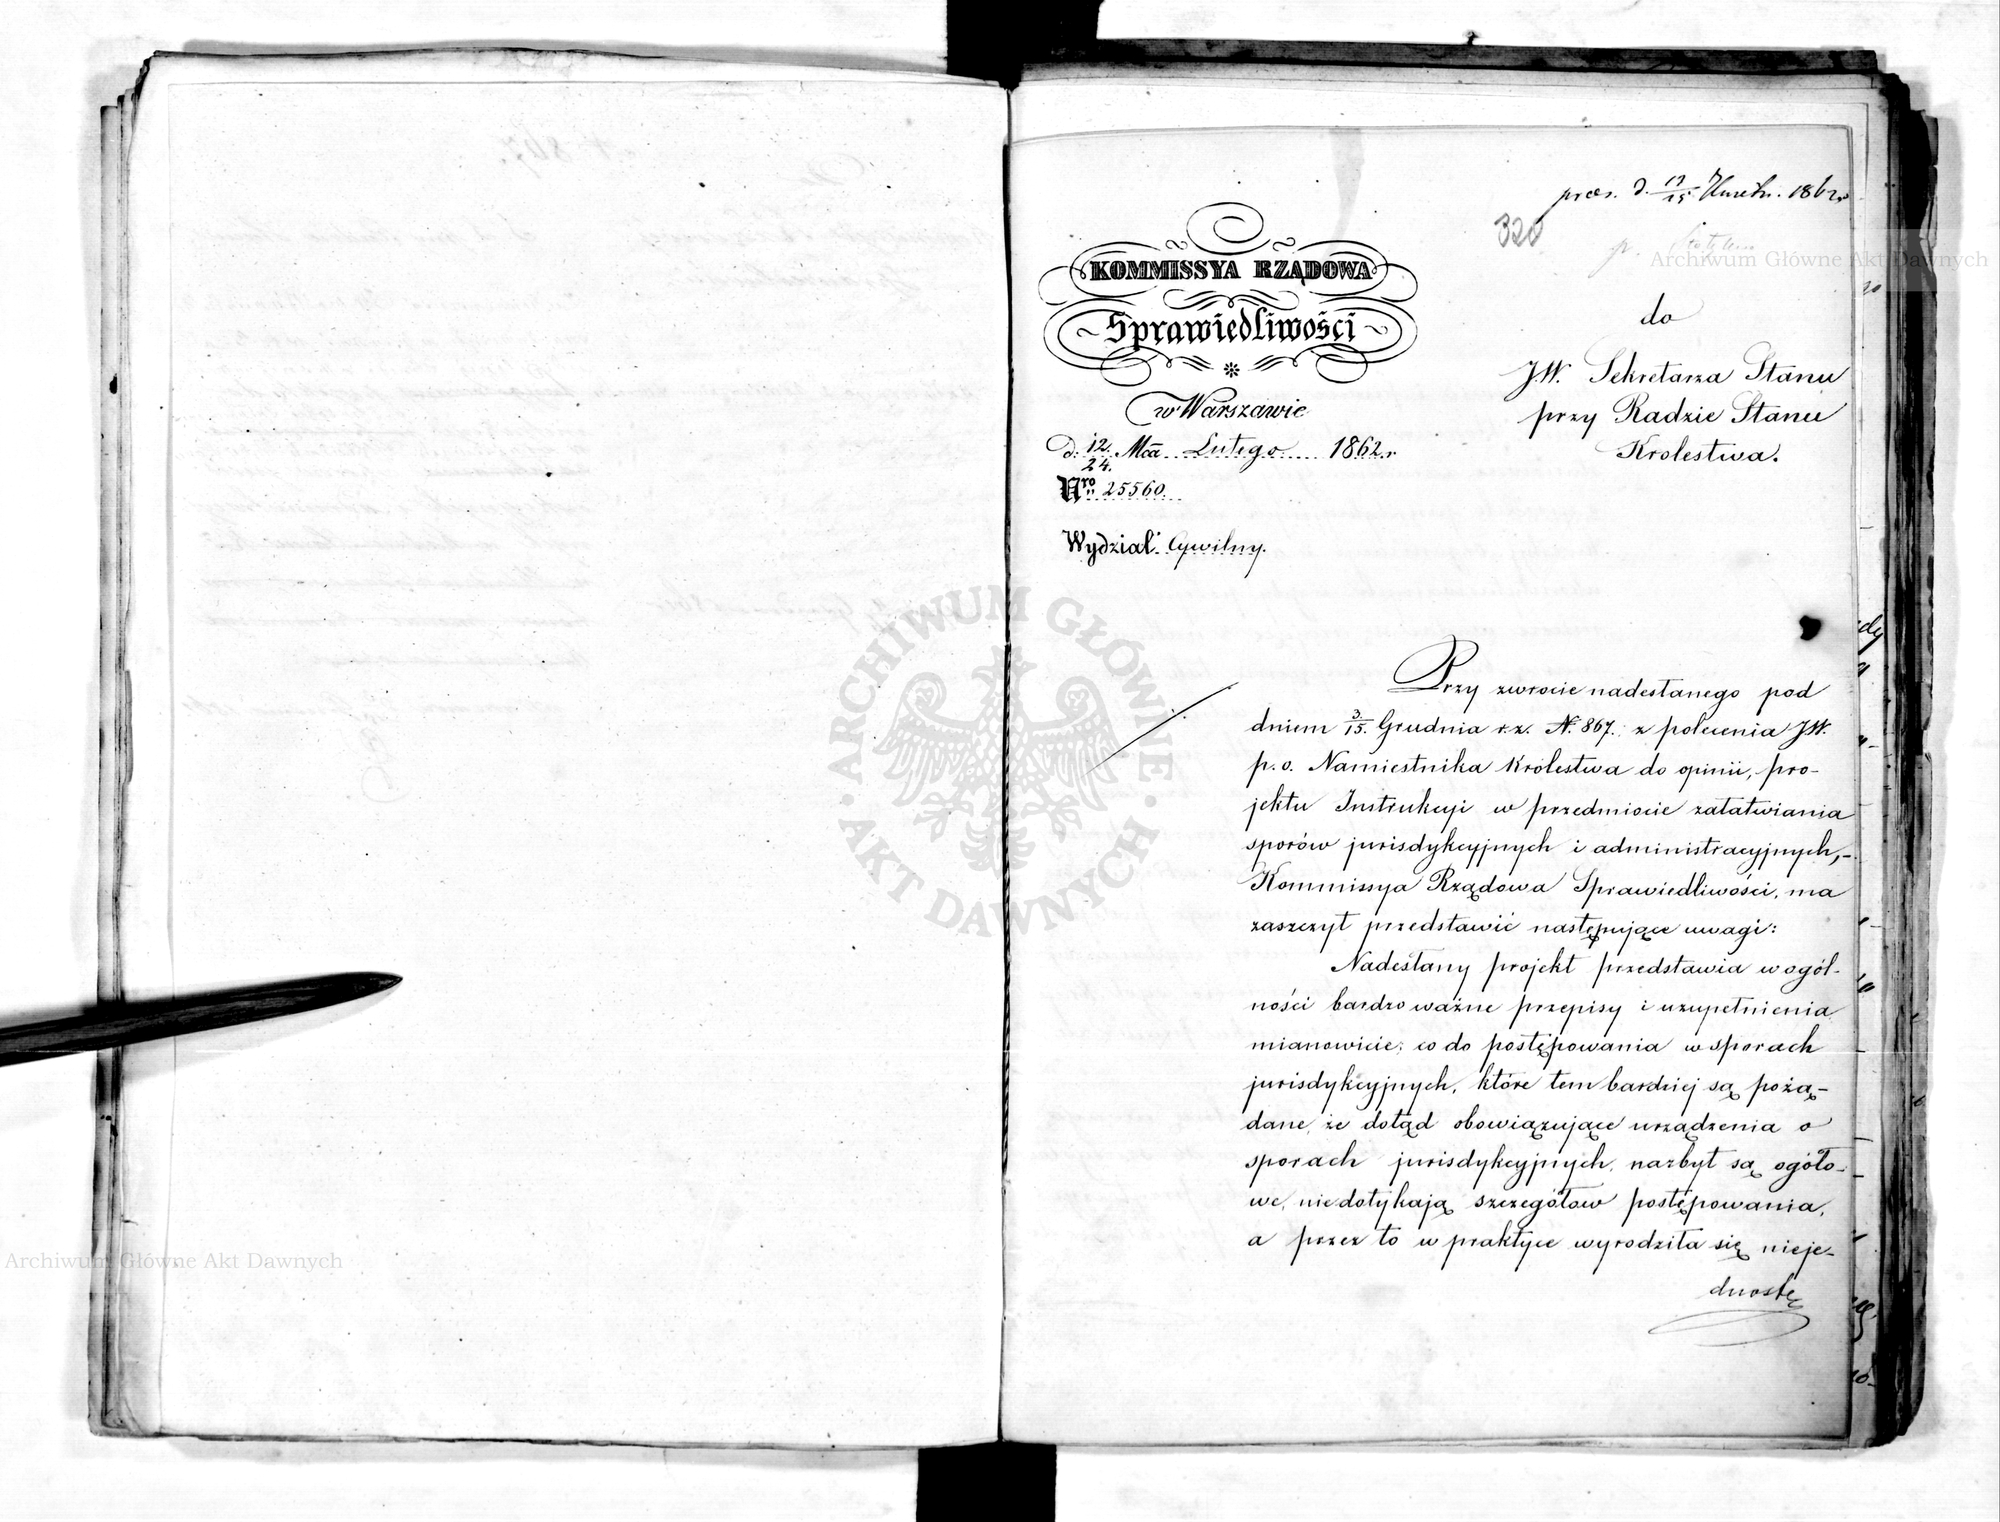 praes. d. 1862 r.
320
KOMMISSYA RZĄDOWA
Sprawiedliwości
w Warszawie
d: 12/24. Mca Lutego 1862. r
Nro 25560.
Wydział Cywilny.
do
JW. Sekretarza Stanu
przy Radzie Stanu
Krolestwa.
Przy zwrocie nadesłanego pod
dniem 3/15. Grudnia r.z. N. 867. z polecenia JW.
p.o. Namiestnika Królestwa do opinii, pro-
jektu Instrukcyi w przedmiocie załatwiania
sporów jurisdykcyjnych i administracyjnych,-
Kommissya Rządowa Sprawiedliwości, ma
zaszczyt przedstawić następujące uwagi:
Nadesłany projekt przedstawia w ogól-
ności bardzo ważne przepisy i uzupełnienia
mianowicie; co do postępowania w sporach
jurisdykcyjnych, które tem bardziej są pożą-
dane, że dotąd obowiązujące urządzenia o
sporach jurisdykcyjnych, nazbyt są ogóło-
we, nie dotykają szczegółow postępowania,
a przez to w praktyce wyrodziła się nieje-
dnostę
Archiwum Główne Akt Dawnych
ARCHIWUM GŁÓWNE AKT DAWNYCH
Archiwum Główne Akt Dawnych